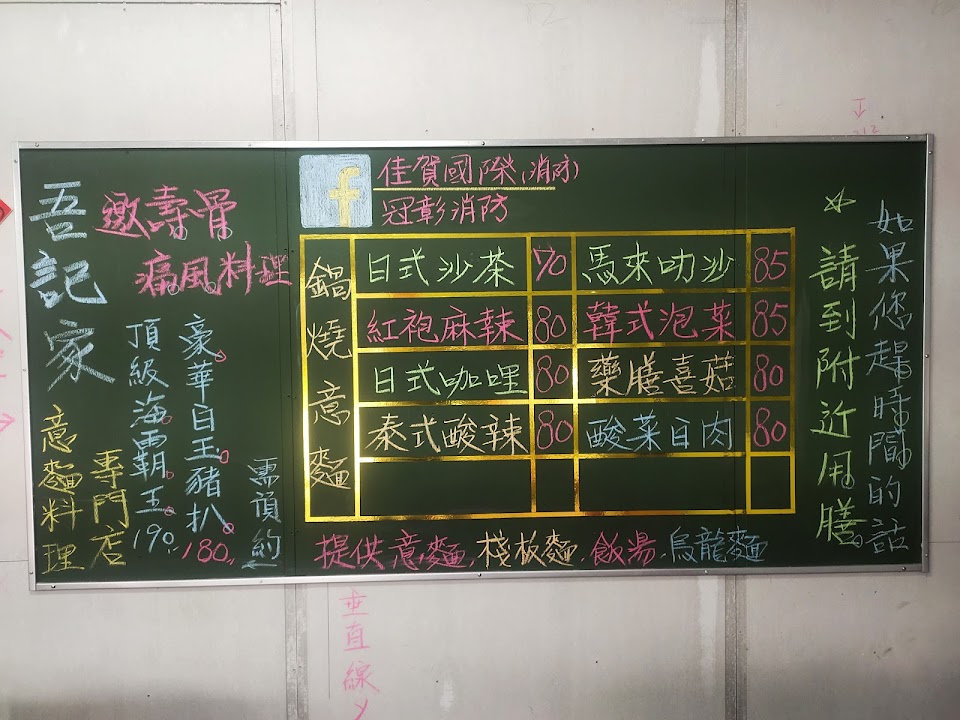 吾記家
意麵料理
專門店
邀壽骨
痛風料理
頂級海霸王190.
豪華白玉豬扒180.
需預約
f
佳賀國際(消防)
冠彰消防
鍋燒意麵
日式沙茶 70 馬來叻沙 85
紅袍麻辣 80 韓式泡菜 85
日式咖哩 80 藥膳喜菇 80
泰式酸辣 80 酸菜白肉 80
提供意麵.棧板麵.飯湯.烏龍麵
如果您趕時間的話
請到附近用膳
垂直線